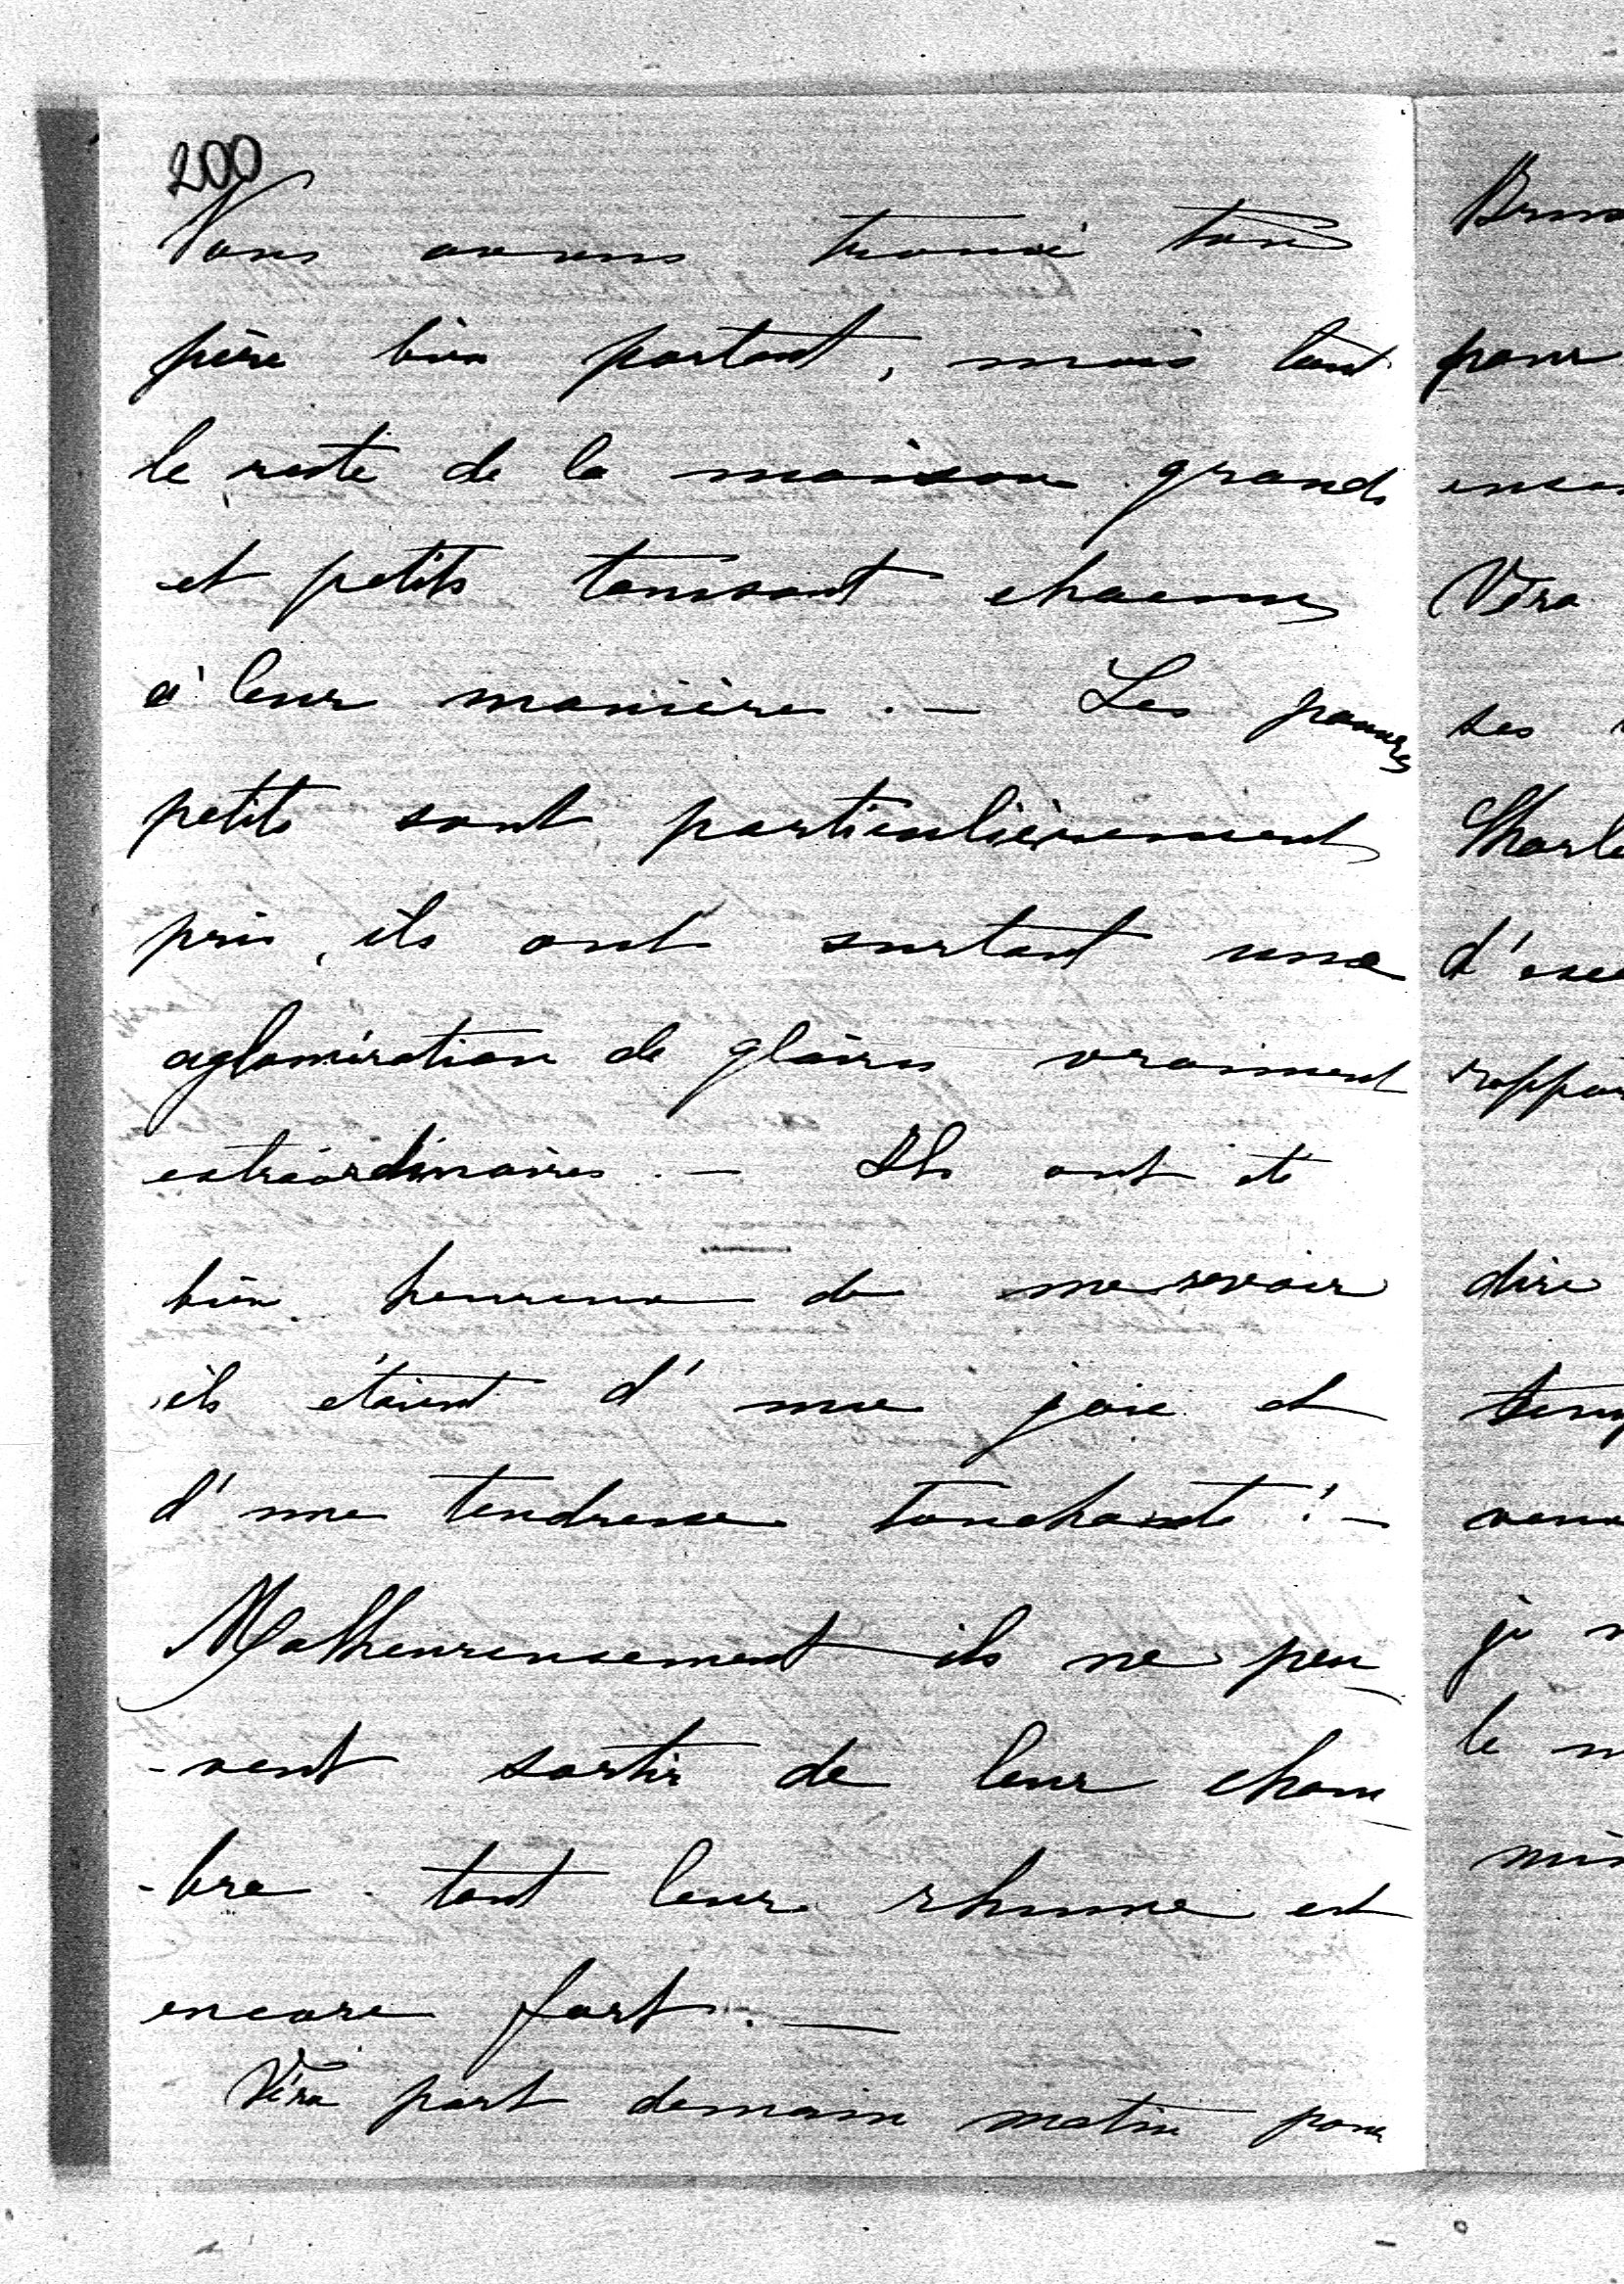 200
Nous avons trouvé ton
père bien portant, mais tout
le reste de la maison grands
et petits toussant chacun
à leur manière. — Les pauvres
petits sont particulièrement
pris, ils ont surtout une
aglomération de glaires vraiment
extraordinaires. — Ils ont été
bien heureux de me revoir
ils étaient d'une joie et
d'une tendresse touchante! —
Malheureusement ils ne peu
-vent sortir de leur cham
-bre tant leur rhume est
encore fort. —
Véra part demain matin pour
pour
Véra
ses
d'
dire
je
le